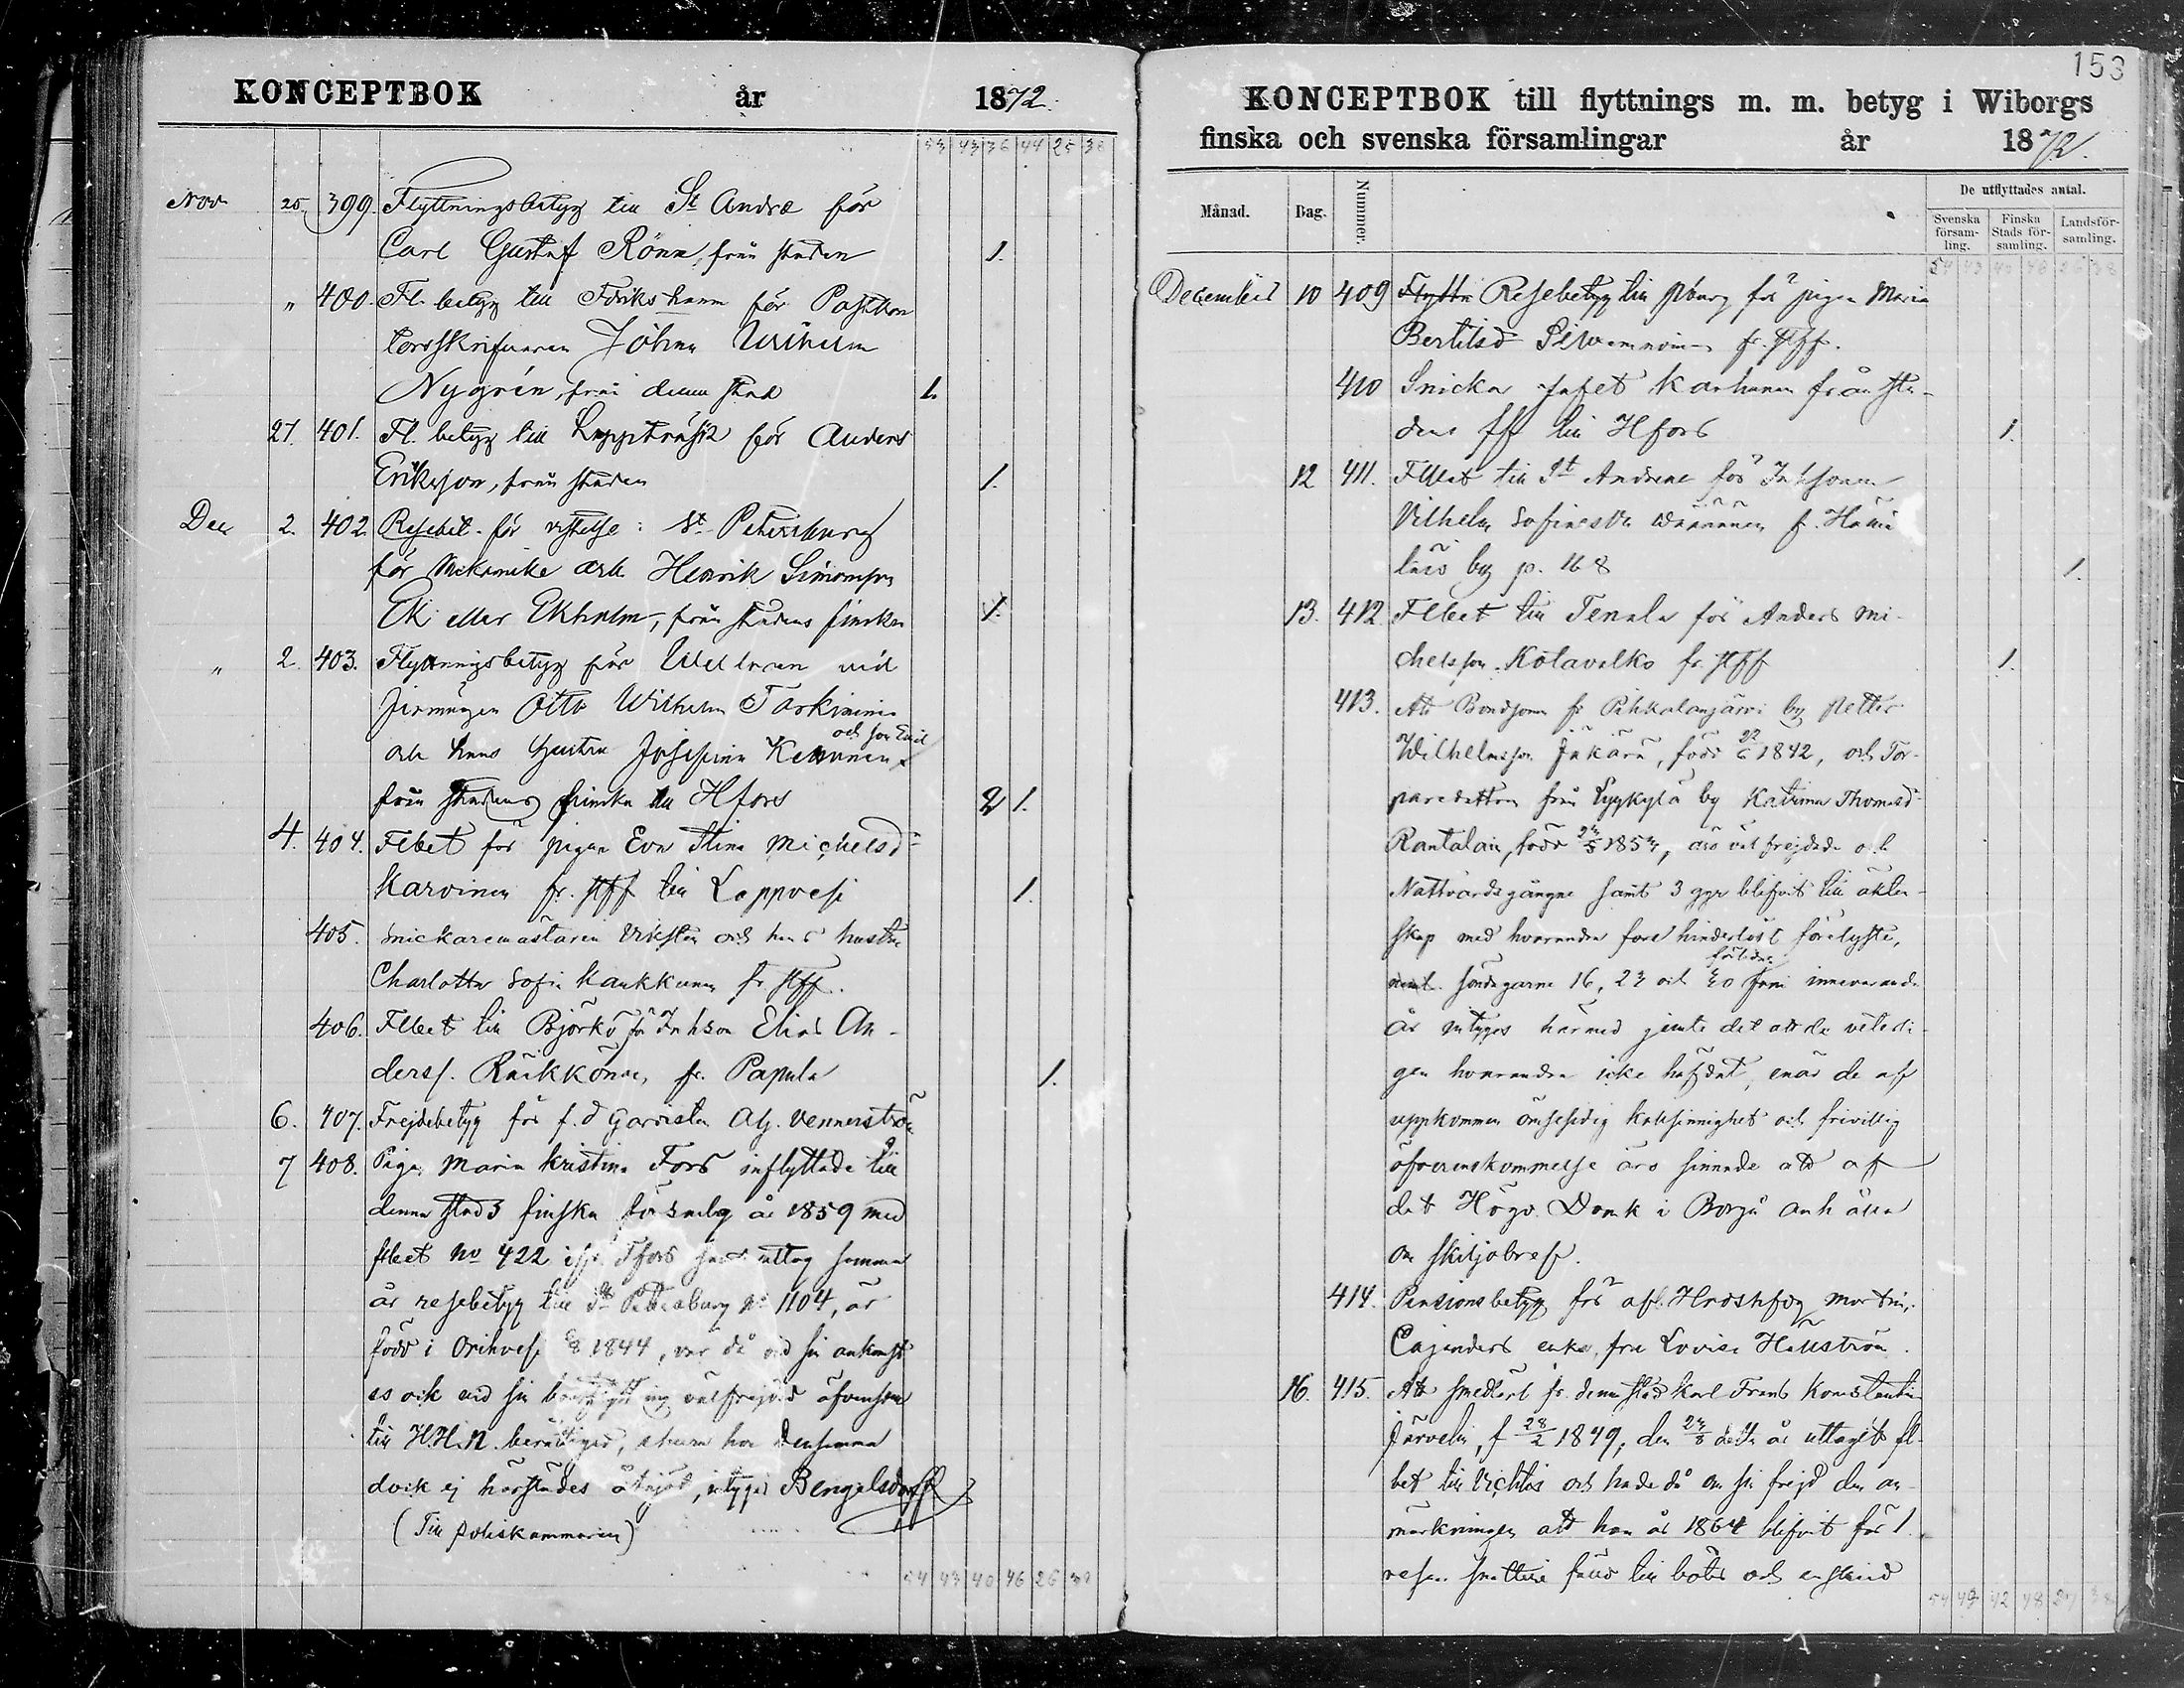 KONCEPTBOK år 1872.
53 43 36 44 25 38
Nov 25. 399. Flyttningsbetyg till St Andræ för
Carl Gustaf Rönn, från staden 1.
" 400. Fl. betyg till Fdrikshamn för
Johan Wilhelm
Nygrén, från denna stad 1.
27. 401. Fl. betyg till Lappträsk för Anders
Eriksson, från staden 1.
Dec 2. 402. Resebet. för vistelse i St. Petersburg
för Mekanike arb. Henrik Simonsson
Ek eller Ekholm, från stadens finska 1.
" 2. 403. Flyttningsbetyg för vid
Otto Wilhelm Tarkiainen
och son Emil
och hans hustru Josefina Kemninen
från stadens finska till Hfors 2 1.
4. 404. Flbet för pigan Eva Stina Michelsdr
Karvinen fr. stff till Lappvesi 1.
405. Snickaremästaren och hans hustru
Charlotta Sofia Kaukkunen fr stff.
406. Flbet till Björkö för Inhson Elias An-
derss. Räikkönen, fr. Papula 1.
6. 407. Frejdebetyg för f.d. Gardisten Alj. Vennerström
7 408. Pigan Maria Kristina Fors inflyttade till
denna stads finska församlg år 1859 med
flbet No 422 ifr. Tfors samt uttog samma
år resebetyg till St Petersburg No 1104, är
född i Orihvesi 1844, var då vid sin ankomst
som ock vid sin bortflyttning välfrejdad äfvensom
till H.H.N. berättigad, ehuru hon densamma
dock ej härstädes åtnjöt, intygas Bengelsdorff
(Till poliskammaren)
54 43 40 46 26 38
153
KONCEPTBOK till flyttnings m. m. betyg i Wiborgs
finska och svenska församlingar år 1872.
Månad. Dag. Nummer. De utflyttades antal.
Svenska församling. Finska Stads församling. Landsförsamling.
54 43 40 46 26 38
December 10 409 Resebetyg till Pburg för pigan Maria
Bertilsdr fr. stff.
410 Snickar Jafet Karhunen från sta-
dens ff till Hfors 1.
12 411. Flbet till St Andreæ för Inhsonen
Vilhelm Sofiasson Väänänen fr. Häme
läis by p. 168 1.
13. 412. Flbet till Tenala för Anders Mi-
chelsson Kolavalko fr. stff 1.
413. Att Bondsonen fr Pihkalanjärvi by Petter
Wilhelmsson Jäkärä, född 22/6 1842, och Tor-
paredottren från Lyykylä by Katrina Thomasdr
Rantalain, född 1853, äro väl frejdade och
Nattvardsgångne samt 3 ggr blifvit till äkten-
skap med hvarandra hinderlöst förelyste,
förliden
söndagarne 16, 23 och 30 Juni innevarande
år intygas härmed jemte det att de veterli-
gen hvarandra icke häfdat, enär de af
uppkommen ömsesidig kallsinnighet och frivillig
öfverenskommelse äro sinnade att af
det Högv. Domk i Borgå anhålla
om skiljobref.
414. Pensionsbetyg för afl. Hrdshfdg Martin
Cajanders enka, fru Lovisa Hellström.
16. 415. Att smedlärl fr. denna stad Karl Frans Konstantin
Järvelin, f 28/2 1849, den detta år uttagit fl-
bet till Vichtis och hade då om sin frejd den an-
märkningen att han år 1864 blifvit för 1.
resan snatteri fälld till böter och enskild
54 43 42 48 27 38